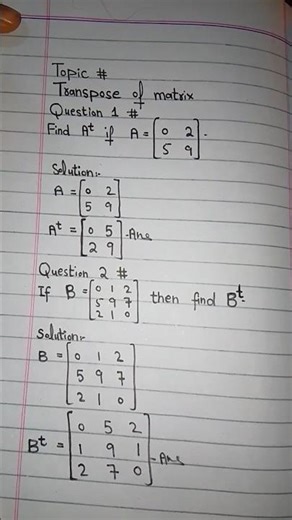 Topic #
Transpose of matrix
Question 1 #
Find Aᵗ if A = [0 2
5 9].
Solution:-
A = [0 2
5 9]
Aᵗ = [0 5
2 9] -Ans
Question 2 #
If B = [0 1 2
5 9 7
2 1 0] then find Bᵗ.
Solution:-
B = [0 1 2
5 9 7
2 1 0]
Bᵗ = [0 5 2
1 9 1
2 7 0] -Ans